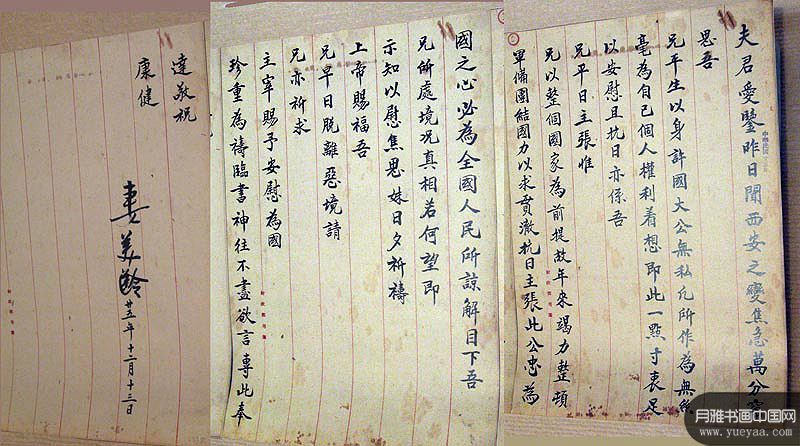 夫君愛鑒昨日聞西安之變焦急萬分竊
思吾
兄平生以身許國大公無私凡所作為無絲
毫為自己個人權利着想即此一點寸衷足
以安慰且抗日亦係吾
兄平日主張惟
兄以整個國家為前提故年來竭力整頓
軍備團結國力以求貫澈抗日主張此公忠為
國之心必為全國人民所諒解目下吾
兄所處境況真相若何望即
示知以慰焦思妹日夕祈禱
上帝賜福吾
兄早日脫離惡境請
兄亦祈求
主宰賜予安慰為國
珍重為禱臨書神往不盡欲言專此奉
達敬祝
康健
妻美齡
廿五年十二月十三日
月雅书画中国网
www.yueyaa.com